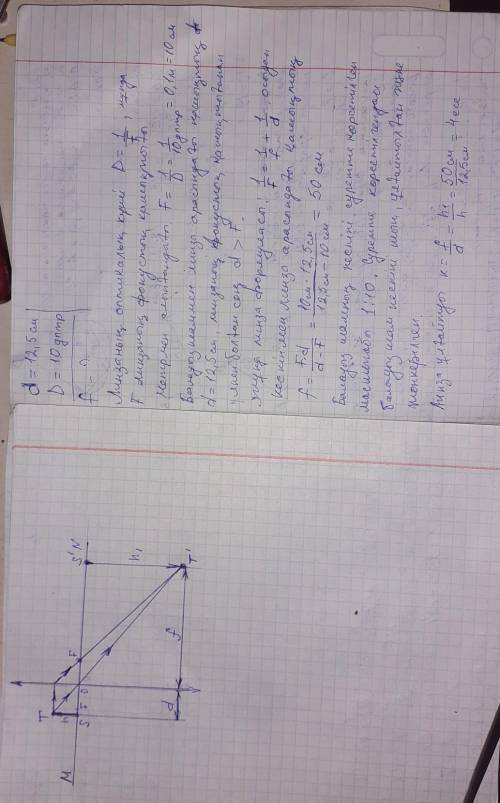 d = 12,5 см
D = 10 дптр
f - ?
Линзаның оптикалық күші D = 1/F, мұнда
F линзаның фокустық қашықтығы
F = 1/D = 1/10 дптр = 0,1 м = 10 см
Балауыз шаммен линза арасындағы қашықтық
d = 12,5 см, линзаның фокустық қашықтығынан
үлкен болған соң d > F.
Жұқа линза формуласы: 1/F = 1/f + 1/d, осыдан
кескін мен линза арасындағы қашықтық
f = F·d/d-F = 10 см · 12,5 см/12,5 см - 10 см = 50 см
Балауыз шамның кескіні суретте көрсетілген
масштабы 1:10. Суретте көрсетілгендей
балауыз шам кескіні шын, ұлғайтылған және
төңкерілген.
Линза ұлғайтуы k = f/d = h1/h = 50 см/12,5 см = 4 есе
M
T
h
S
F
O
F
S' N
h1
T'
d
f